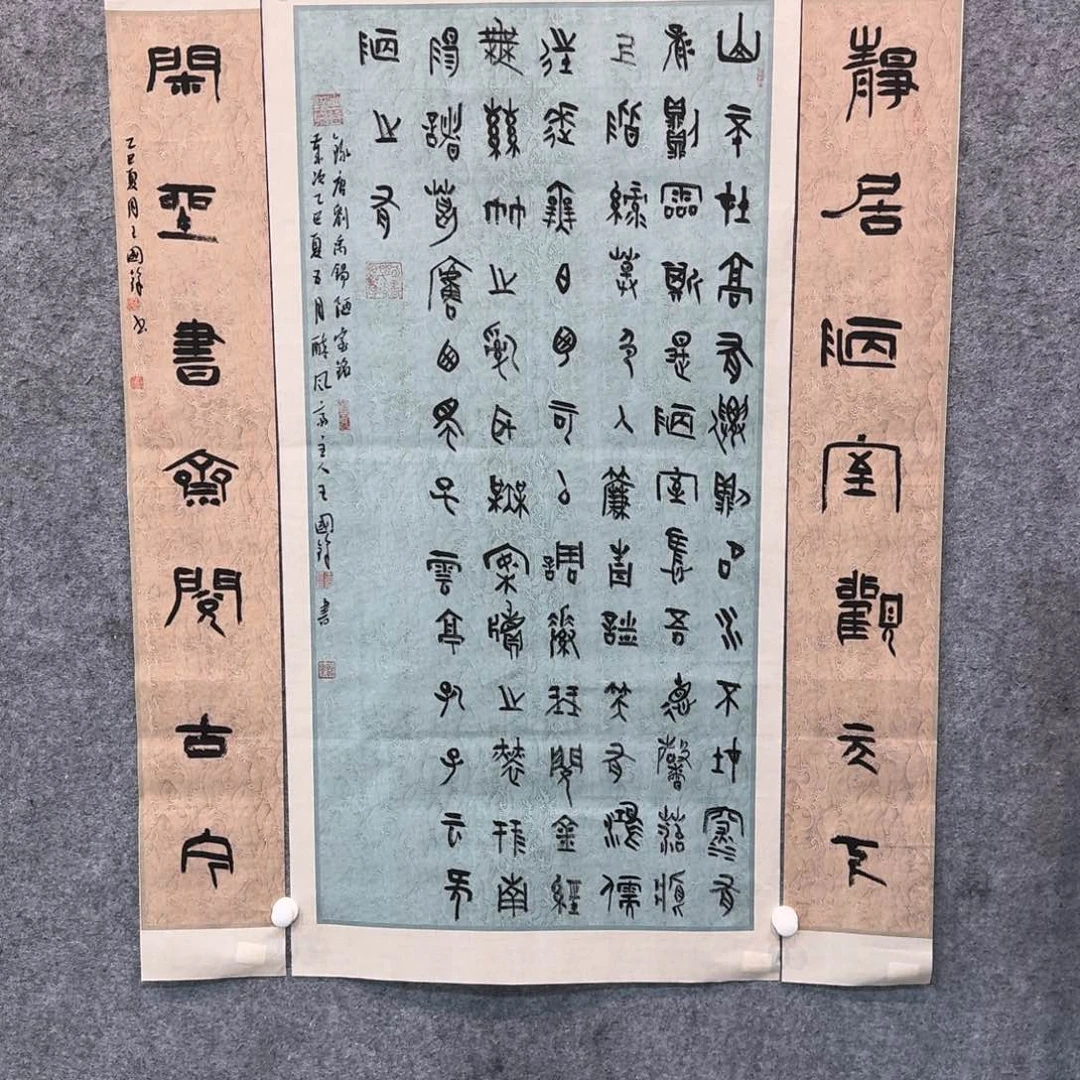 靜居陋室觀
山不在高有僊則名水不在深有
龍則靈斯是陋室惟吾德馨苔痕
上階綠草色入簾青談笑有鴻儒
往來無白丁可以調素琴閱金經
無絲竹之亂耳無案牘之勞形南
陽諸葛廬西蜀子雲亭孔子云何
陋之有
錄唐劉禹錫陋室銘
歲次乙巳夏五月醉風主人王國鋒書
閑坐書齋閱古今
乙巳夏月王國鋒書